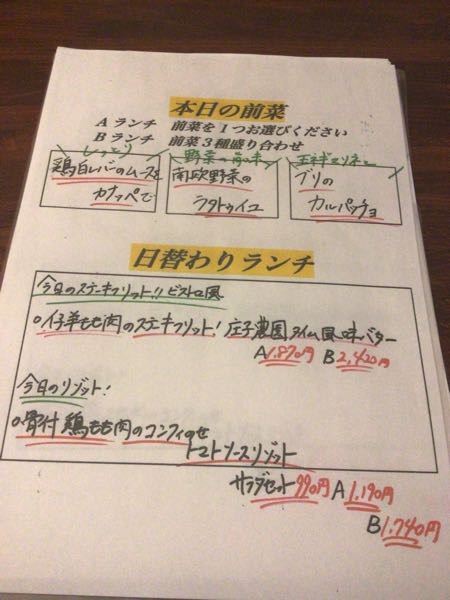 本日の前菜
Aランチ 前菜を1つお選びください
Bランチ 前菜3種盛り合わせ
しっとり
鶏白レバーのムースを
カナッペで
野菜の
南欧野菜の
ラタトゥイユ
ブリの
カルパッチョ
日替わりランチ
今日のステーキフリット!! ビストロ風
○仔羊もも肉のステーキフリット! 庄子農園タイム風味バター
A1.870円 B2,420円
今日のリゾット!
○骨付鶏もも肉のコンフィのせ
トマトソースリゾット
サラダセット990円 A1.190円
B1.740円